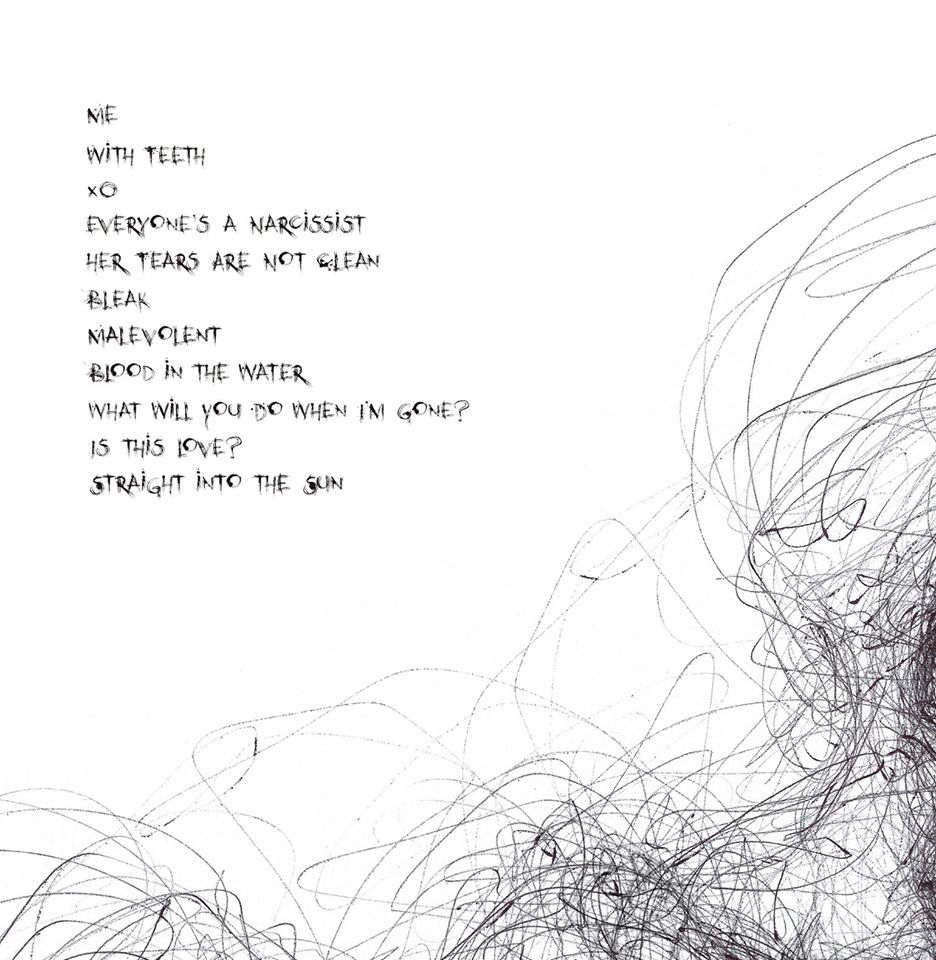 ME
WITH TEETH
XO
EVERYONE'S A NARCISSIST
HER TEARS ARE NOT CLEAN
BLEAK
MALEVOLENT
BLOOD IN THE WATER
WHAT WILL YOU DO WHEN I'M GONE?
IS THIS LOVE?
STRAIGHT INTO THE SUN